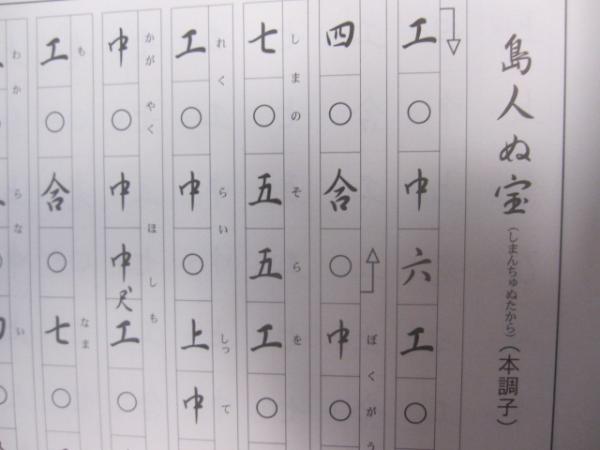 島人ぬ宝(しまんちゅぬたから)(本調子)
工〇中六工〇
四〇合〇中〇
ぼくがう
七〇五五工〇
しまのそらを
工〇中〇上中
れくらいしって
中〇中中尺工〇
かがやくほしも
工〇合〇七〇
もなま
わからない